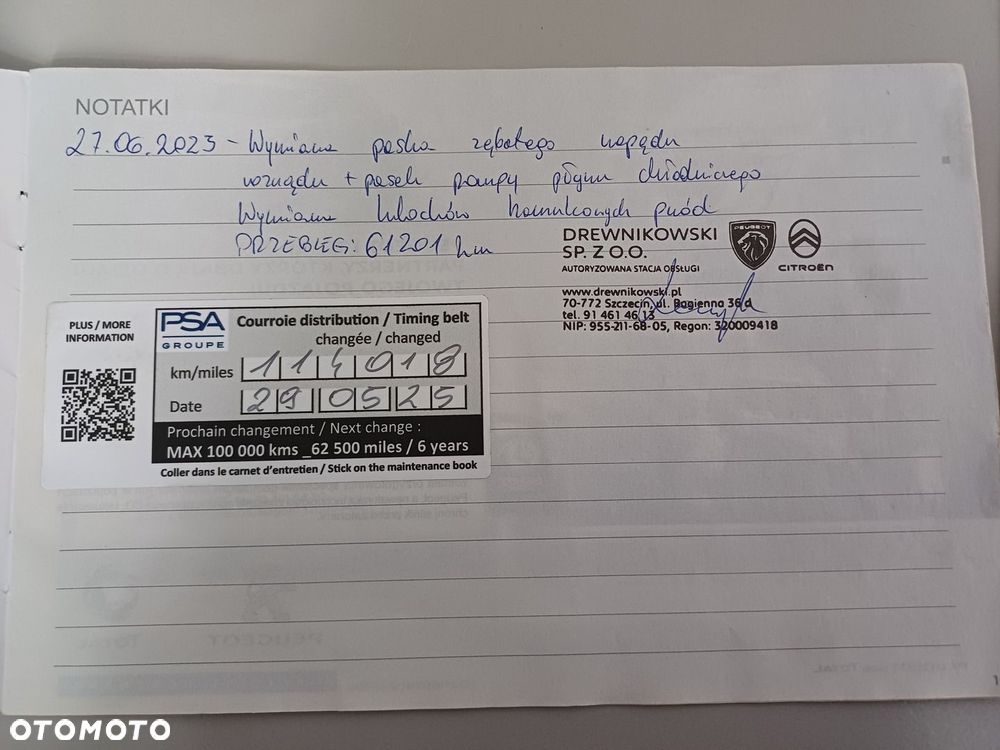 NOTATKI
27.06.2023 - Wymiana paska zębatego napędu
rozrządu + pasek pompy płynu chłodniczego
Wymiana klocków hamulcowych przód
PRZEBIEG: 61201 km
DREWNIKOWSKI
SP. Z O.O.
AUTORYZOWANA STACJA OBSŁUGI
PEUGEOT
CITROËN
www.drewnikowski.pl
70-772 Szczecin, ul. Bagienna 36 d
tel. 91 461 46 13
NIP: 955-211-68-05, Regon: 320009418
PLUS / MORE
INFORMATION
PSA
GROUPE
Courroie distribution / Timing belt
changée / changed
km/miles 114018
Date 29 05 25
Prochain changement / Next change :
MAX 100 000 kms _62 500 miles / 6 years
Coller dans le carnet d'entretien / Stick on the maintenance book
OTOMOTO